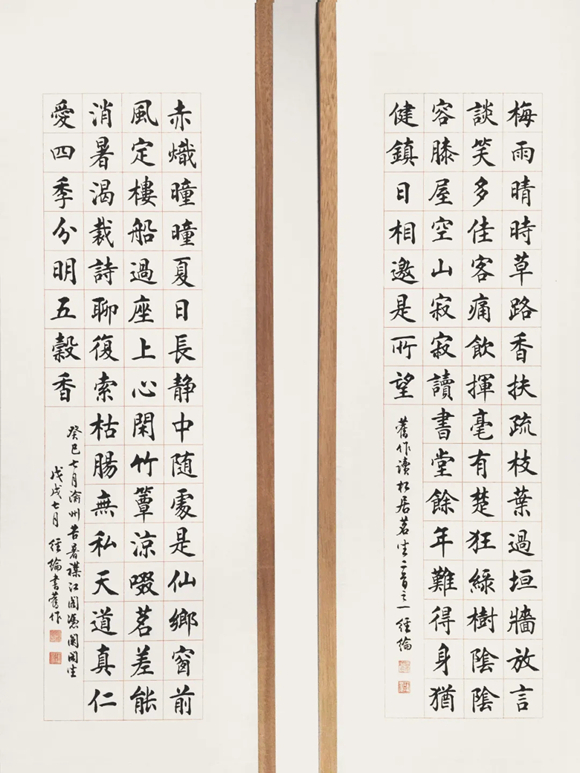 梅雨晴時草路香扶疏枝葉過垣牆放言
談笑多佳客痛飲揮毫有楚狂綠樹陰陰
容膝屋空山寂寂讀書堂餘年難得身猶
健鎮日相邀是所望
舊作讀松居茗坐二首之一 經綸
赤熾曈曈夏日長静中隨處是仙鄉窗前
風定樓船過座上心閑竹簟涼啜茗差能
消暑渴裁詩聊復索枯腸無私天道真仁
愛四季分明五穀香
癸巳七月渝州苦暑江閣閑坐
戊戌七月 經綸書舊作